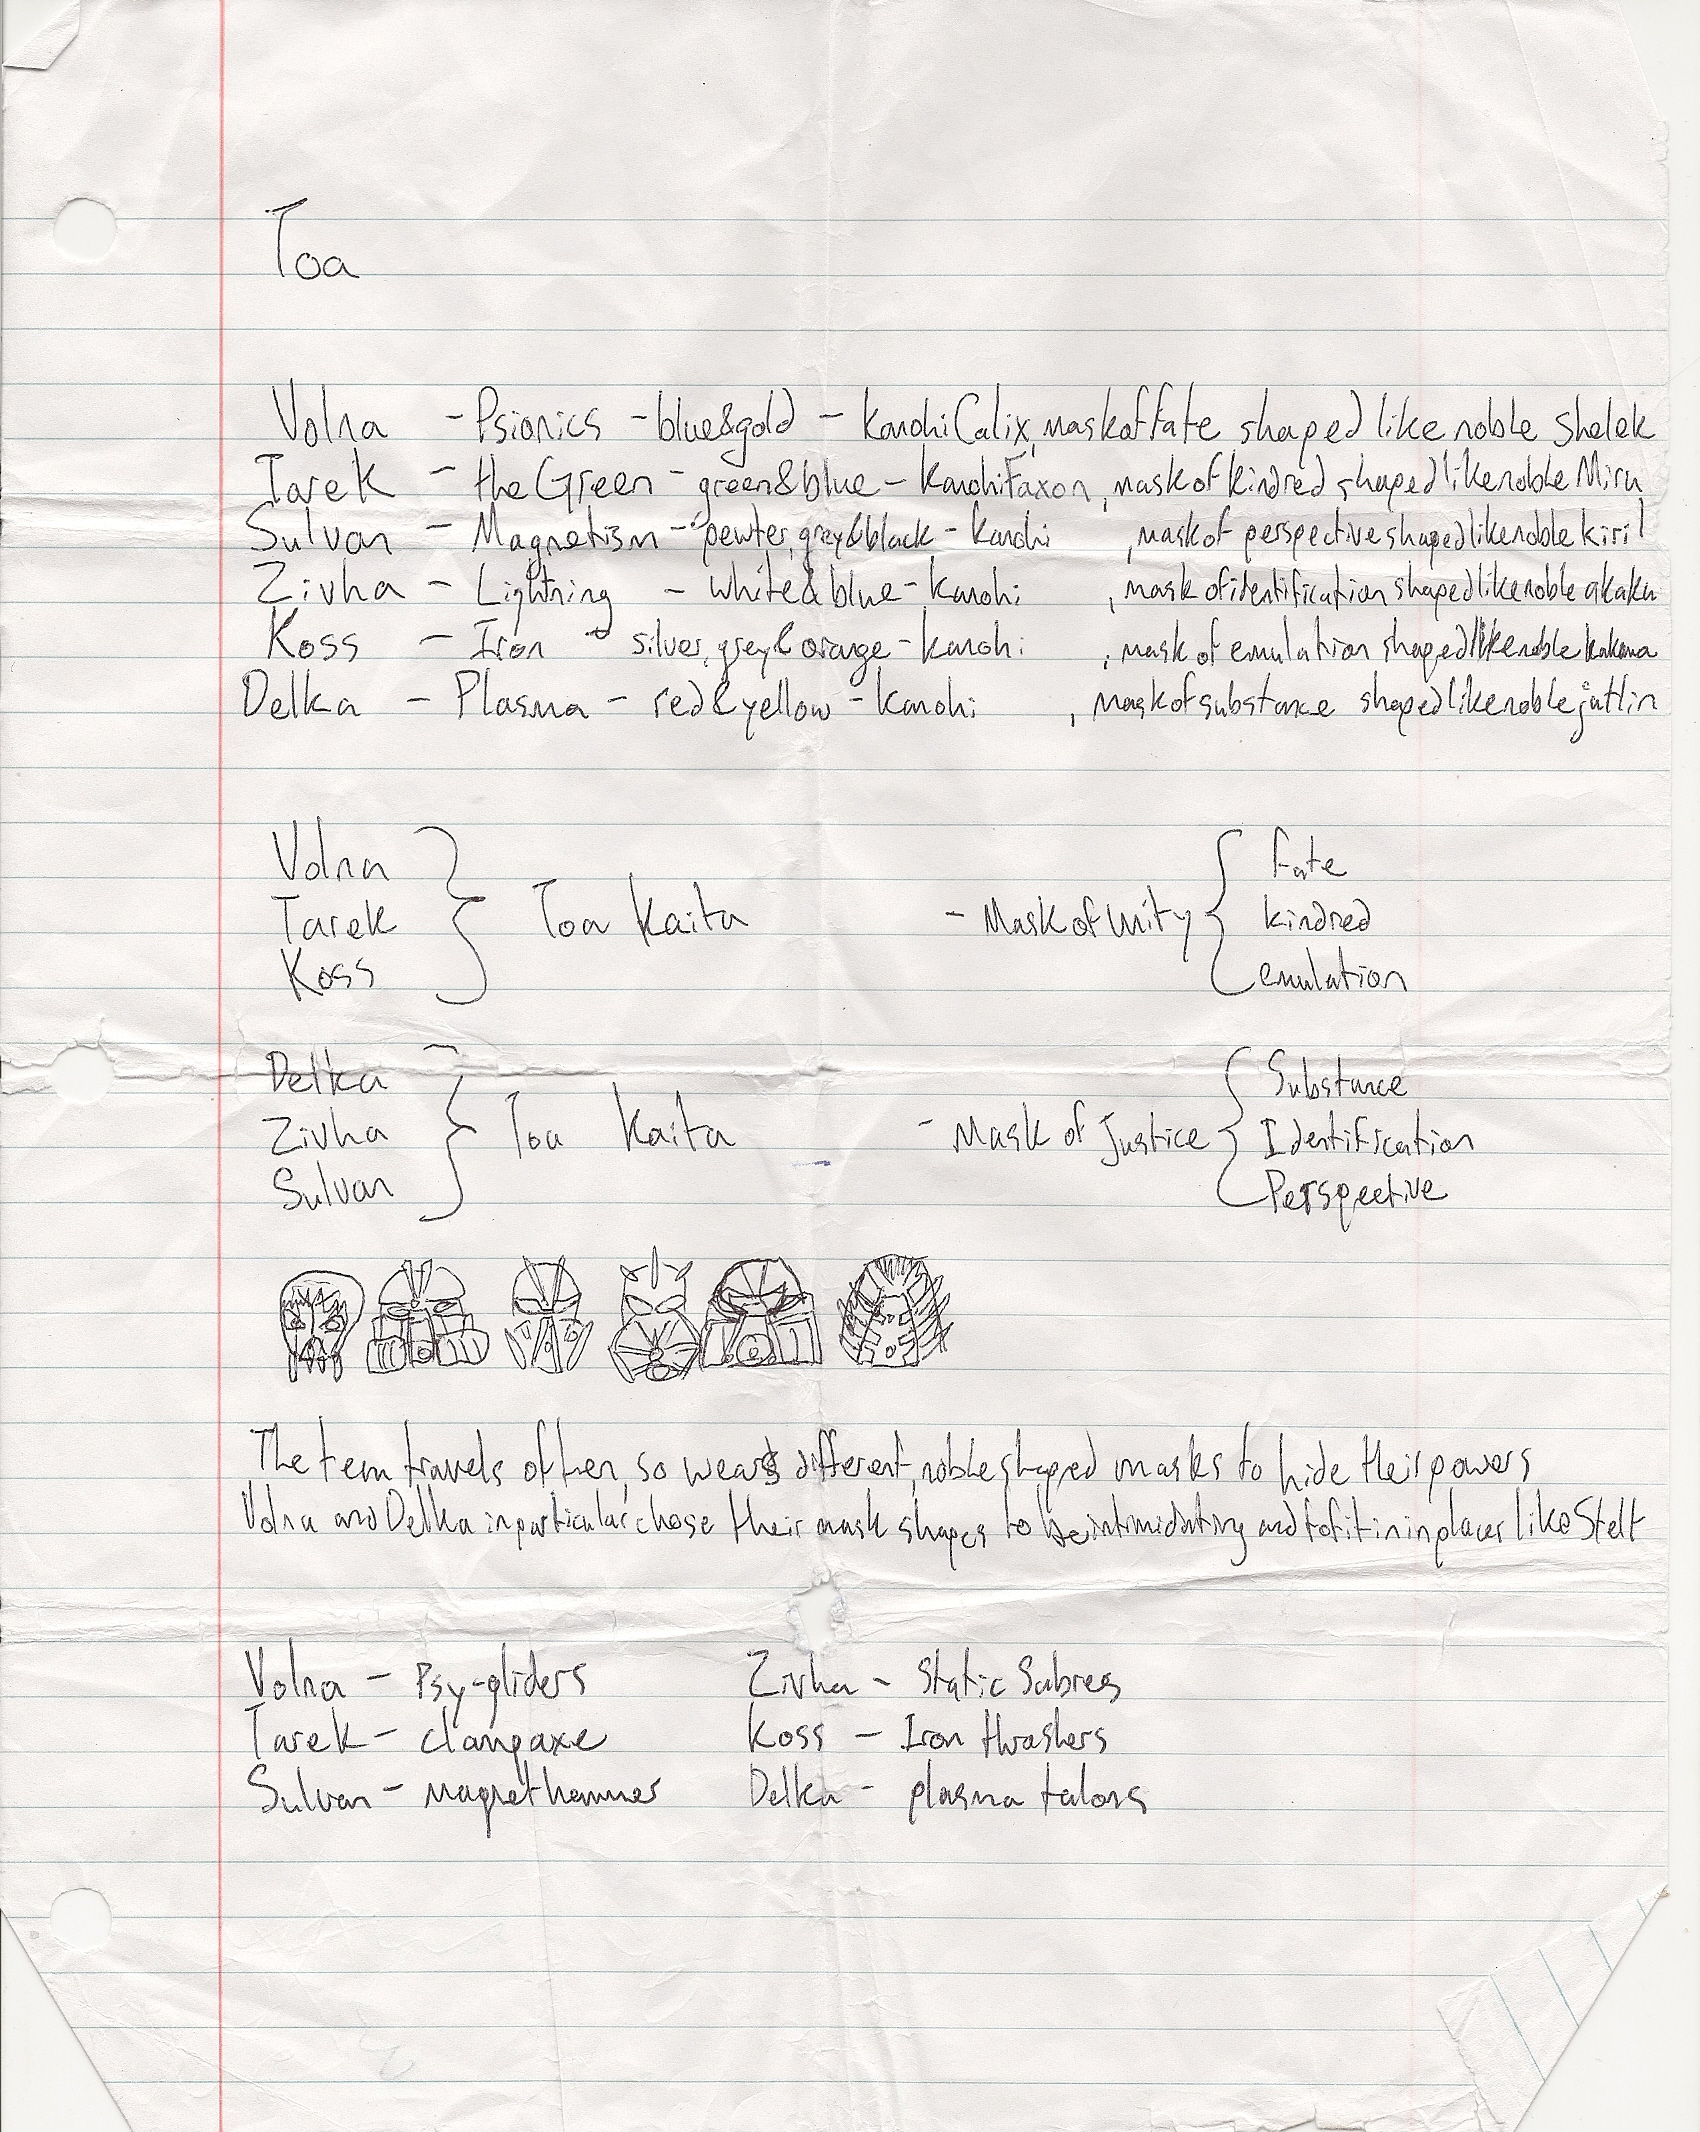 Toa
Volna - Psionics - blue & gold - Kanohi Calix, mask of Fate shaped like noble Shelek
Tarek - the Green - green & blue - Kanohi Faxon, mask of kindred shaped like noble Miru
Sulvan - Magnetism - pewter, grey & black - Kanohi , mask of perspective shaped like noble kiril
Zivha - Lightning - white & blue - Kanohi , mask of identification shaped like noble akaku
Koss - Iron - silver, grey & orange - Kanohi , mask of emulation shaped like noble kakama
Delka - Plasma - red & yellow - Kanohi , mask of substance shaped like noble jutlin
Volna
Tarek
Koss
Toa Kaita - Mask of Unity
Fate
kindred
emulation
Delka
Zivha
Sulvan
Toa Kaita - Mask of Justice
Substance
Identification
Perspective
The team travels often, so wears different, noble shaped masks to hide their powers
Volna and Delka in particular chose their mask shapes to be intimidating and to fit in in places like Stelt
Volna - Psy-gliders Zivha - Static Sabres
Tarek - clangaxe Koss - Iron thrashers
Sulvan - magnet hammer Delka - plasma talons